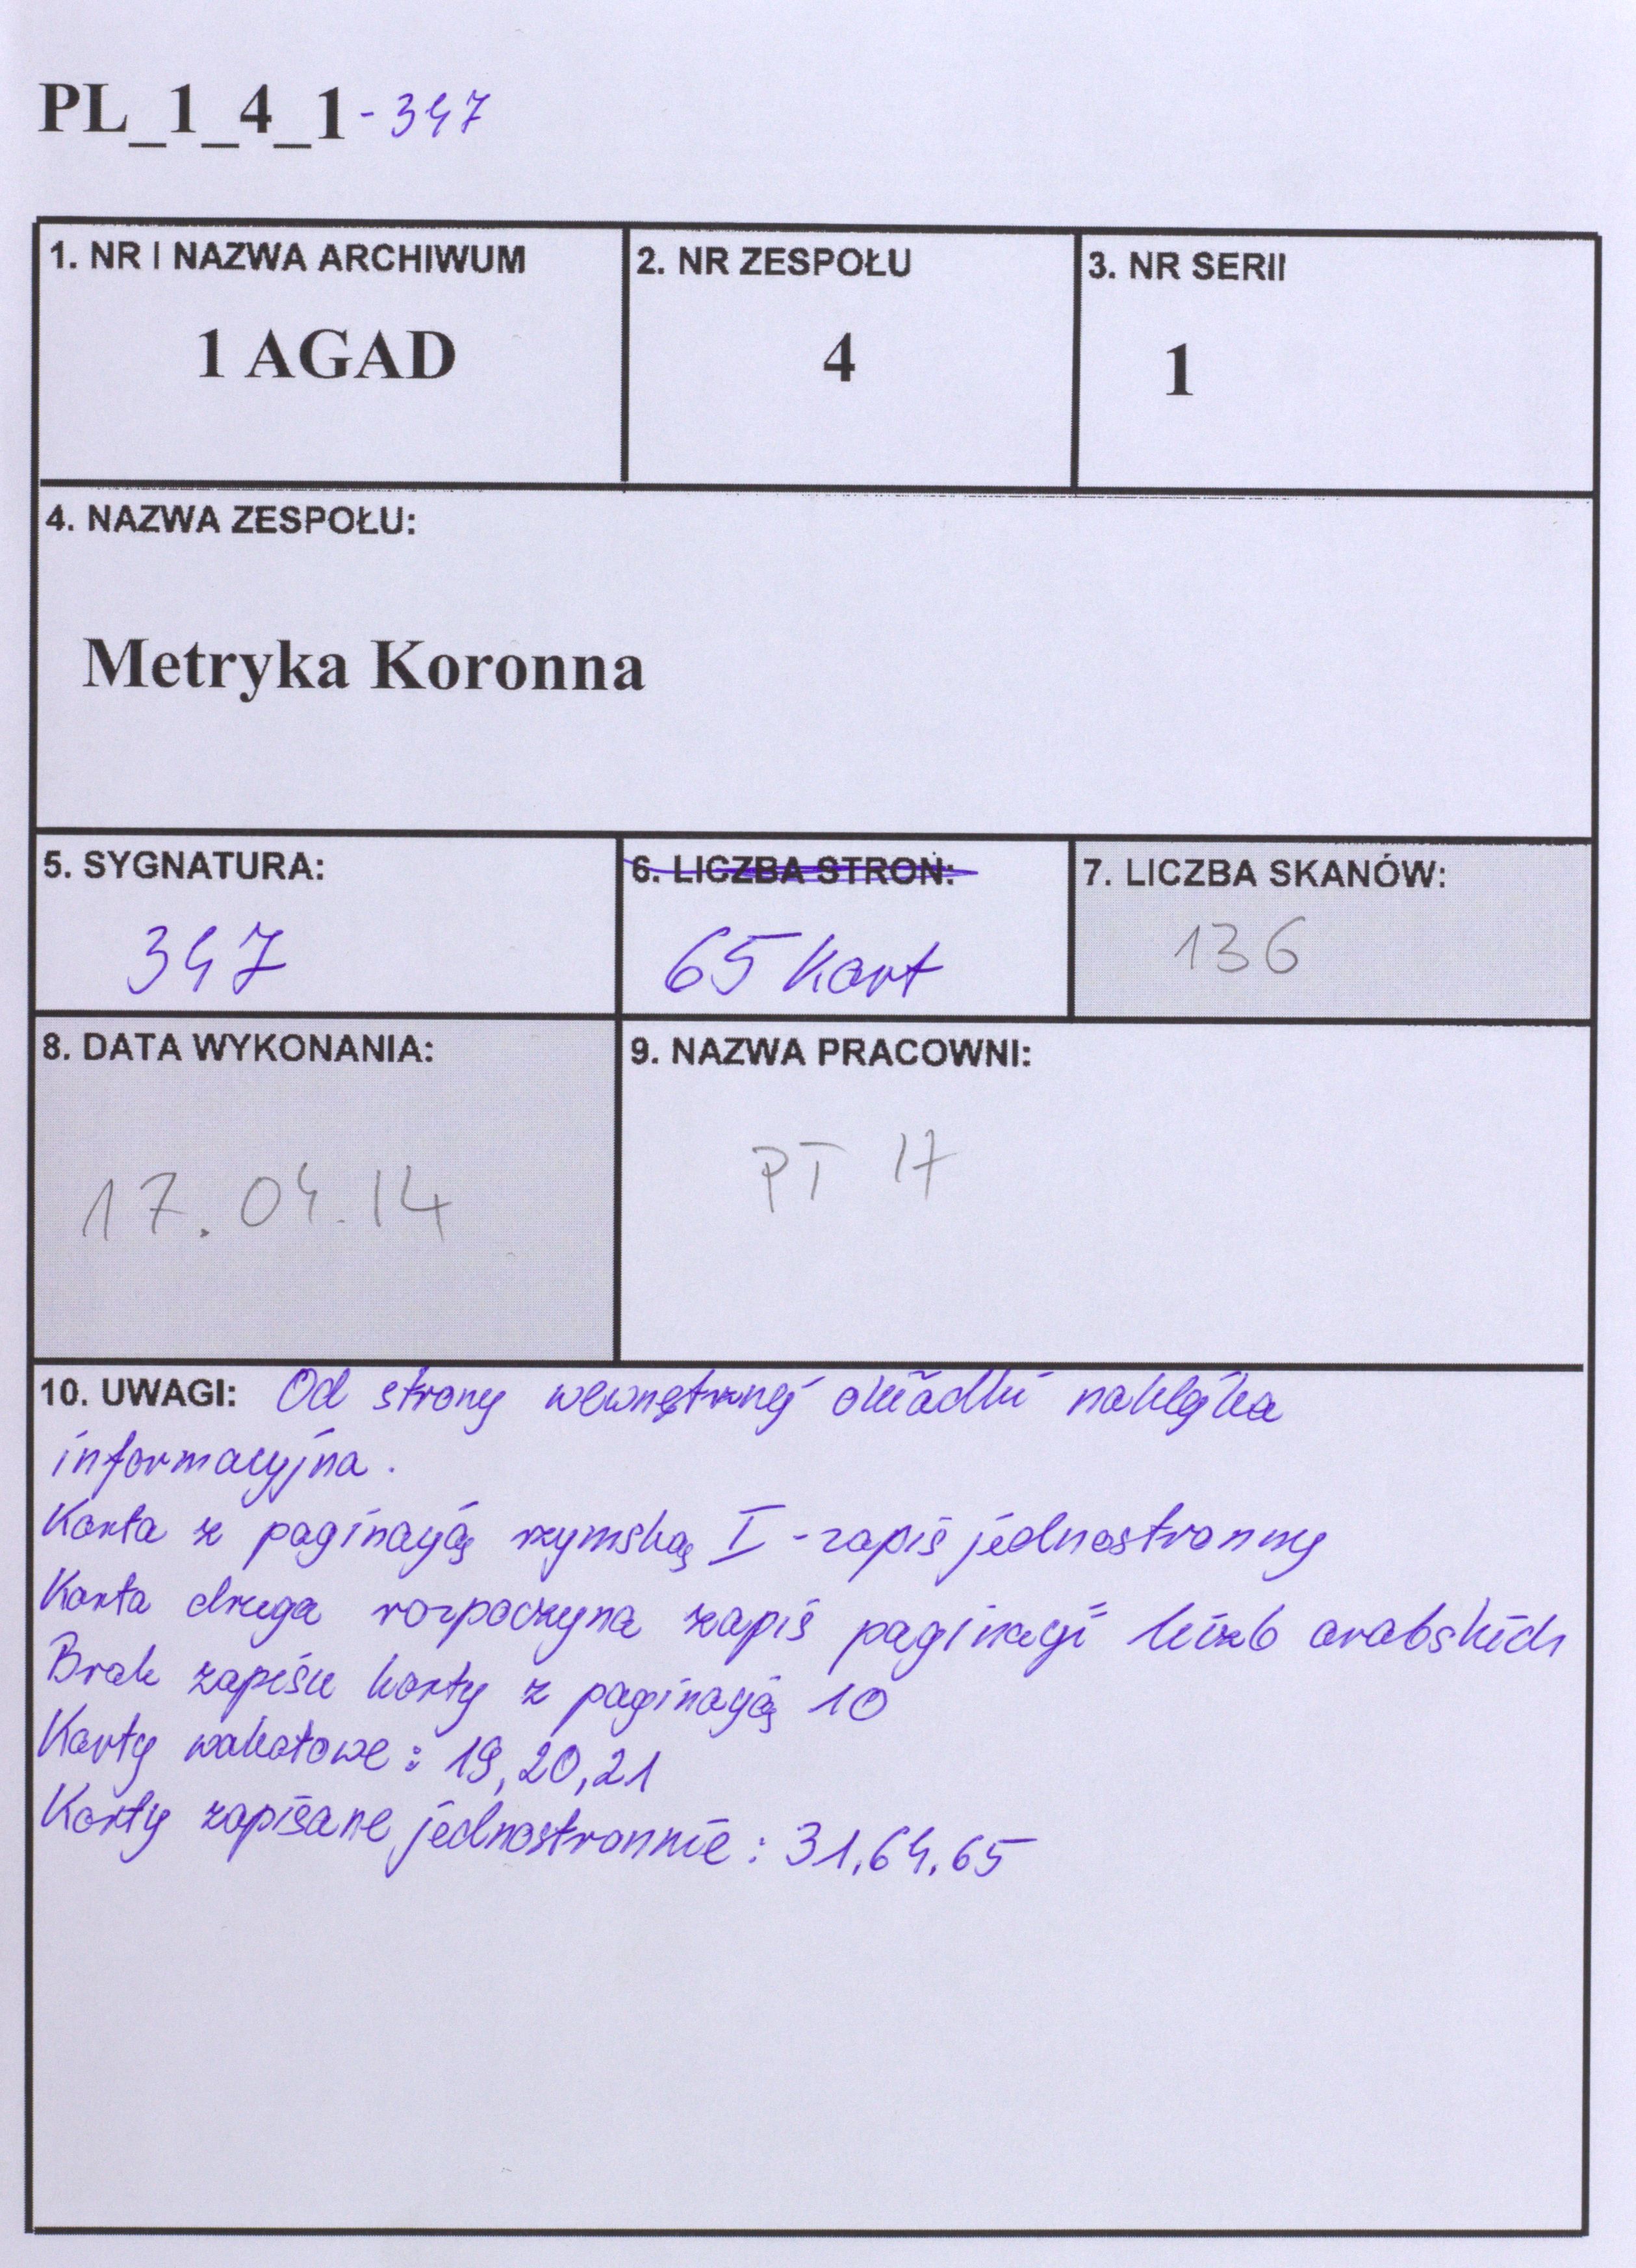 PL_1_4_1-347
1. NR I NAZWA ARCHIWUM
1 AGAD
2. NR ZESPOŁU
4
3. NR SERII
1
4. NAZWA ZESPOŁU:
Metryka Koronna
5. SYGNATURA:
347
6. LICZBA STRON:
65 kart
7. LICZBA SKANÓW:
136
8. DATA WYKONANIA:
17.04.14
9. NAZWA PRACOWNI:
PT 17
10. UWAGI: Od strony wewnętrznej okładki naklejka
informacyjna.
Karta z paginacją rzymską I - zapis jednostronny
Karta druga rozpoczyna zapis paginacji liczb arabskich
Brak zapisu karty z paginacją 10
Karty wakatowe: 19, 20, 21
Karty zapisane jednostronnie: 31, 64, 65